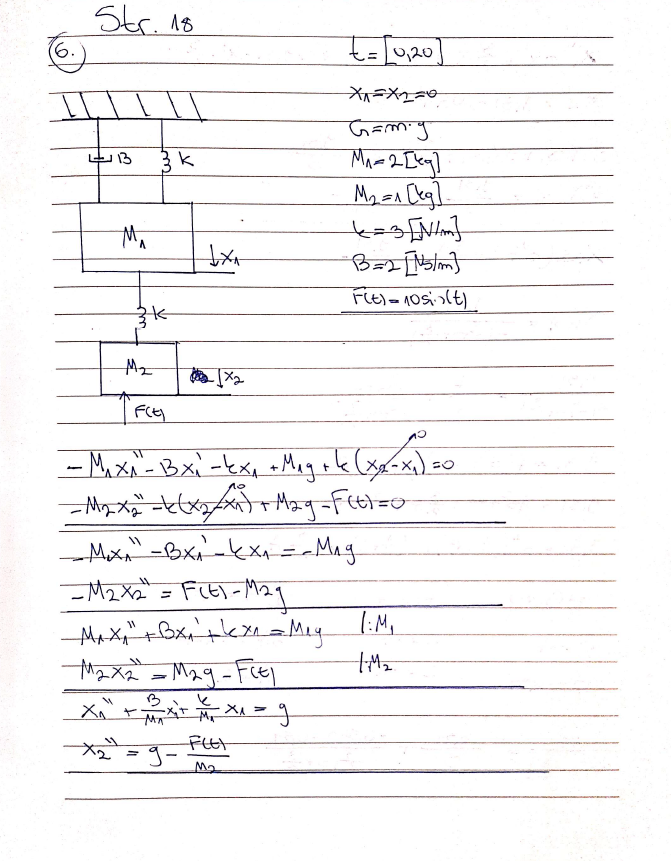 Str. 18
6.
t = [0,20]
x1 = x2 = 0
G = m·g
M1 = 2 [kg]
M2 = 1 [kg]
k = 3 [N/m]
B = 2 [Ns/m]
F(t) = 10sin(t)
B
k
M1
↓x1
k
M2
↓x2
F(t)
- M1x1'' - Bx1' - kx1 + M1g + k(x2-x1)→0 = 0
- M2x2'' - k(x2-x1)→0 + M2g - F(t) = 0
- M1x1'' - Bx1' - kx1 = - M1g
- M2x2'' = F(t) - M2g
M1x1'' + Bx1' + kx1 = M1g /:M1
M2x2'' = M2g - F(t) /:M2
x1'' + B/M1 x1' + k/M1 x1 = g
x2'' = g - F(t)/M2